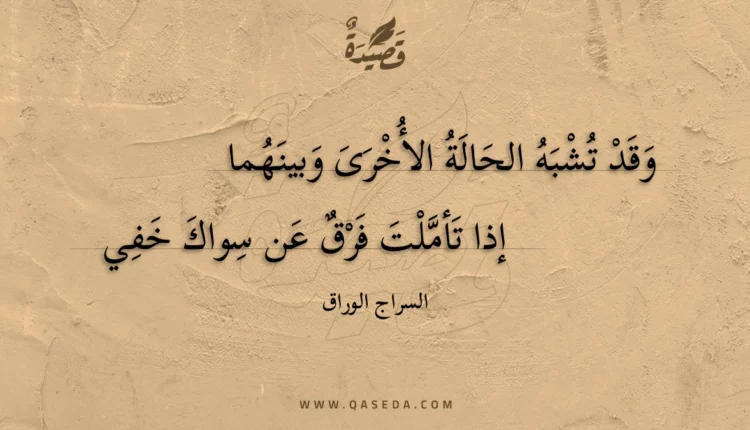 قَصِيْدَةٌ
وَقَدْ تُشْبَهُ الحَالَةُ الأُخْرَىَ وَبينَهُما
إذا تَأمَّلْتَ فَرْقٌ عَن سِواكَ خَفِي
السراج الوراق
WWW.QASEDA.COM